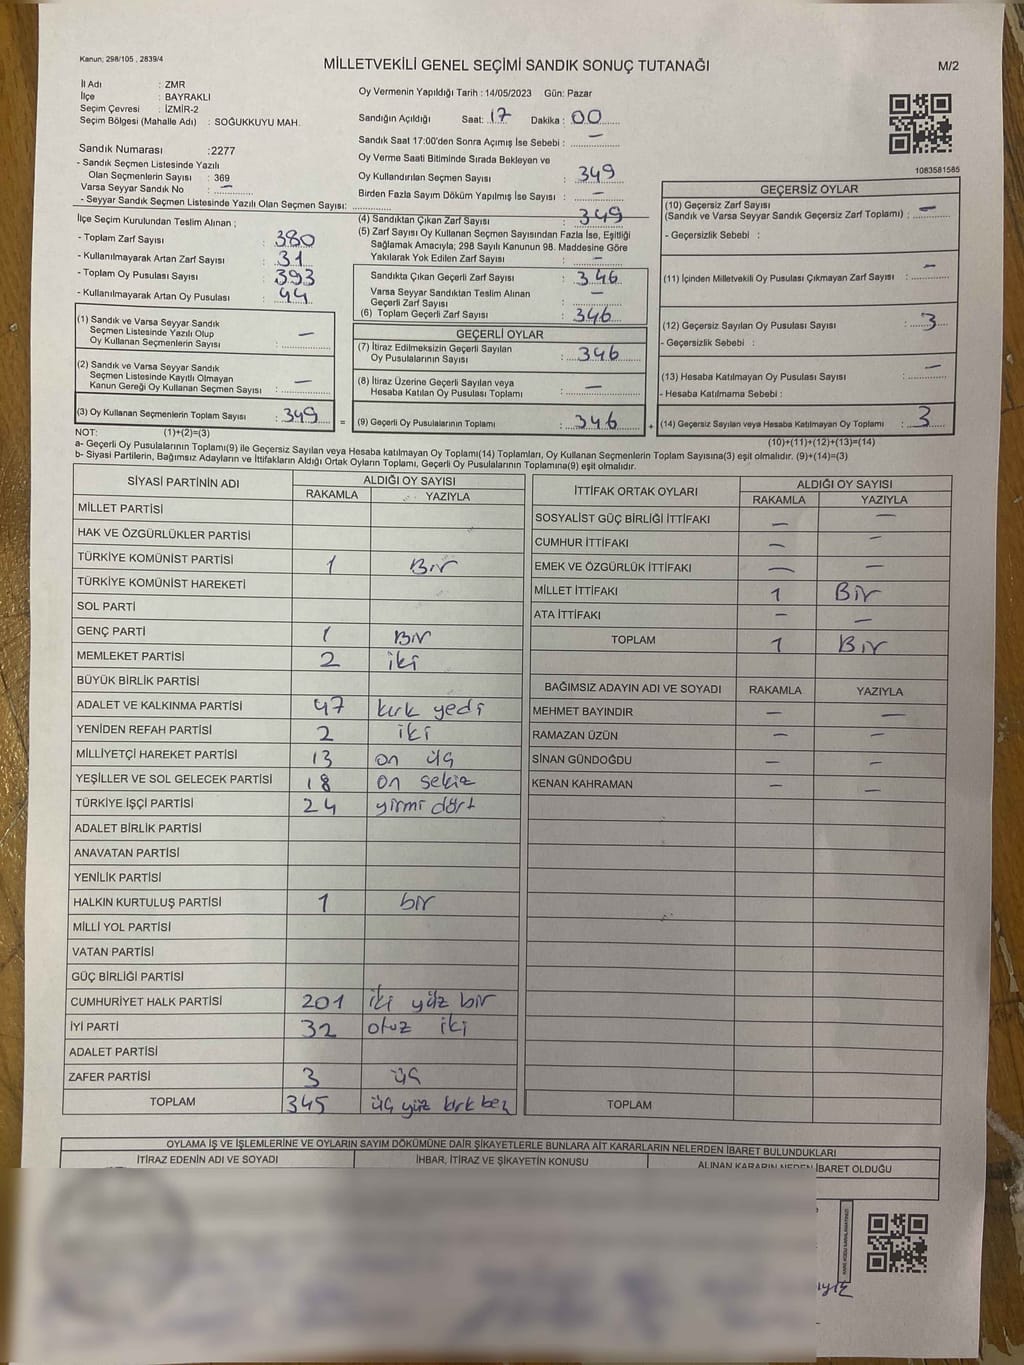 Kanun; 298/105 , 2839/4
MİLLETVEKİLİ GENEL SEÇİMİ SANDIK SONUÇ TUTANAĞI
M/2
İl Adı : ZMR
İlçe : BAYRAKLI
Seçim Çevresi : İZMİR-2
Seçim Bölgesi (Mahalle Adı) : SOĞUKKUYU MAH.
Sandık Numarası :2277
- Sandık Seçmen Listesinde Yazılı
Olan Seçmenlerin Sayısı : 369
Varsa Seyyar Sandık No : —
- Seyyar Sandık Seçmen Listesinde Yazılı Olan Seçmen Sayısı:
İlçe Seçim Kurulundan Teslim Alınan ;
- Toplam Zarf Sayısı : 380
- Kullanılmayarak Artan Zarf Sayısı : 31
- Toplam Oy Pusulası Sayısı : 393
- Kullanılmayarak Artan Oy Pusulası : 44
(1) Sandık ve Varsa Seyyar Sandık
Seçmen Listesinde Yazılı Olup
Oy Kullanan Seçmenlerin Sayısı : —
(2) Sandık ve Varsa Seyyar Sandık
Seçmen Listesinde Kayıtlı Olmayan
Kanun Gereği Oy Kullanan Seçmen Sayısı : —
(3) Oy Kullanan Seçmenlerin Toplam Sayısı : 349 =
Oy Vermenin Yapıldığı Tarih : 14/05/2023 Gün: Pazar
Sandığın Açıldığı Saat: 17 Dakika : 00
Sandık Saat 17:00'den Sonra Açımış İse Sebebi : —
Oy Verme Saati Bitiminde Sırada Bekleyen ve
Oy Kullandırılan Seçmen Sayısı : 349
Birden Fazla Sayım Döküm Yapılmış İse Sayısı : —
(4) Sandıktan Çıkan Zarf Sayısı : 349
(5) Zarf Sayısı Oy Kullanan Seçmen Sayısından Fazla İse, Eşitliği
Sağlamak Amacıyla; 298 Sayılı Kanunun 98. Maddesine Göre
Yakılarak Yok Edilen Zarf Sayısı : —
Sandıkta Çıkan Geçerli Zarf Sayısı : 346
Varsa Seyyar Sandıktan Teslim Alınan
Geçerli Zarf Sayısı : —
(6) Toplam Geçerli Zarf Sayısı : 346
GEÇERLİ OYLAR
(7) İtiraz Edilmeksizin Geçerli Sayılan
Oy Pusulalarının Sayısı : 346
(8) İtiraz Üzerine Geçerli Sayılan veya
Hesaba Katılan Oy Pusulası Toplamı : —
(9) Geçerli Oy Pusulalarının Toplamı : 346 +
1083581585
GEÇERSİZ OYLAR
(10) Geçersiz Zarf Sayısı
(Sandık ve Varsa Seyyar Sandık Geçersiz Zarf Toplamı) : —
- Geçersizlik Sebebi :
(11) İçinden Milletvekili Oy Pusulası Çıkmayan Zarf Sayısı : —
(12) Geçersiz Sayılan Oy Pusulası Sayısı : 3
- Geçersizlik Sebebi :
(13) Hesaba Katılmayan Oy Pusulası Sayısı : —
- Hesaba Katılmama Sebebi :
(14) Geçersiz Sayılan veya Hesaba Katılmayan Oy Toplamı : 3
NOT: (1)+(2)=(3)
(10)+(11)+(12)+(13)=(14)
a- Geçerli Oy Pusulalarının Toplamı(9) ile Geçersiz Sayılan veya Hesaba katılmayan Oy Toplamı(14) Toplamları, Oy Kullanan Seçmenlerin Toplam Sayısına(3) eşit olmalıdır. (9)+(14)=(3)
b- Siyasi Partilerin, Bağımsız Adayların ve İttifakların Aldığı Ortak Oyların Toplamı, Geçerli Oy Pusulalarının Toplamına(9) eşit olmalıdır.
SİYASİ PARTİNİN ADI ALDIĞI OY SAYISI
RAKAMLA YAZIYLA
MİLLET PARTİSİ
HAK VE ÖZGÜRLÜKLER PARTİSİ
TÜRKİYE KOMÜNİST PARTİSİ 1 Bir
TÜRKİYE KOMÜNİST HAREKETİ
SOL PARTİ
GENÇ PARTİ 1 Bir
MEMLEKET PARTİSİ 2 iki
BÜYÜK BİRLİK PARTİSİ
ADALET VE KALKINMA PARTİSİ 47 kırk yedi
YENİDEN REFAH PARTİSİ 2 iki
MİLLİYETÇİ HAREKET PARTİSİ 13 on üç
YEŞİLLER VE SOL GELECEK PARTİSİ 18 on sekiz
TÜRKİYE İŞÇİ PARTİSİ 24 yirmi dört
ADALET BİRLİK PARTİSİ
ANAVATAN PARTİSİ
YENİLİK PARTİSİ
HALKIN KURTULUŞ PARTİSİ 1 bir
MİLLİ YOL PARTİSİ
VATAN PARTİSİ
GÜÇ BİRLİĞİ PARTİSİ
CUMHURİYET HALK PARTİSİ 201 iki yüz bir
İYİ PARTİ 32 otuz iki
ADALET PARTİSİ
ZAFER PARTİSİ 3 üç
TOPLAM 345 üç yüz kırk beş
İTTİFAK ORTAK OYLARI ALDIĞI OY SAYISI
RAKAMLA YAZIYLA
SOSYALİST GÜÇ BİRLİĞİ İTTİFAKI — —
CUMHUR İTTİFAKI — —
EMEK VE ÖZGÜRLÜK İTTİFAKI — —
MİLLET İTTİFAKI 1 Bir
ATA İTTİFAKI — —
TOPLAM 1 Bir
BAĞIMSIZ ADAYIN ADI VE SOYADI RAKAMLA YAZIYLA
MEHMET BAYINDIR — —
RAMAZAN ÜZÜN — —
SİNAN GÜNDOĞDU — —
KENAN KAHRAMAN — —
TOPLAM
OYLAMA İŞ VE İŞLEMLERİNE VE OYLARIN SAYIM DÖKÜMÜNE DAİR ŞİKAYETLERLE BUNLARA AİT KARARLARIN NELERDEN İBARET BULUNDUKLARI
İTİRAZ EDENİN ADI VE SOYADI İHBAR, İTİRAZ VE ŞİKAYETİN KONUSU ALINAN KARARIN NEDEN İBARET OLDUĞU